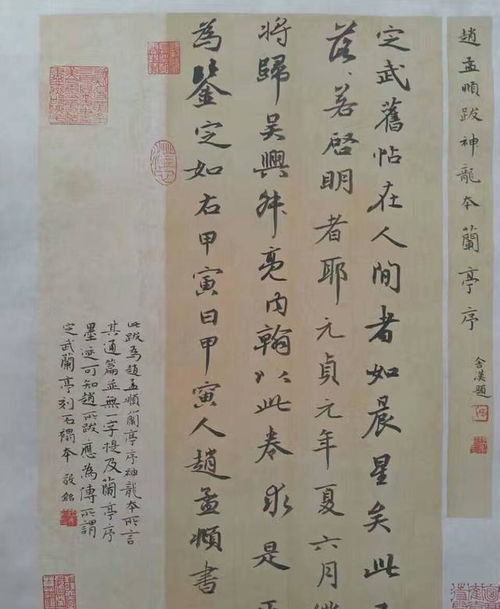 趙孟頫跋神龍本蘭亭序
題
定武舊帖在人間者如晨星矣此
落、若啓明者耶元貞元年夏六月
將歸吳興叔亮內翰以此卷求是
為鑒定如右甲寅日甲寅人趙孟頫書
此跋為趙孟頫蘭亭序神龍本所言
其通篇並無一字提及蘭亭序
墨迹可知趙所跋應為傳所謂
定武蘭亭刻石搨本